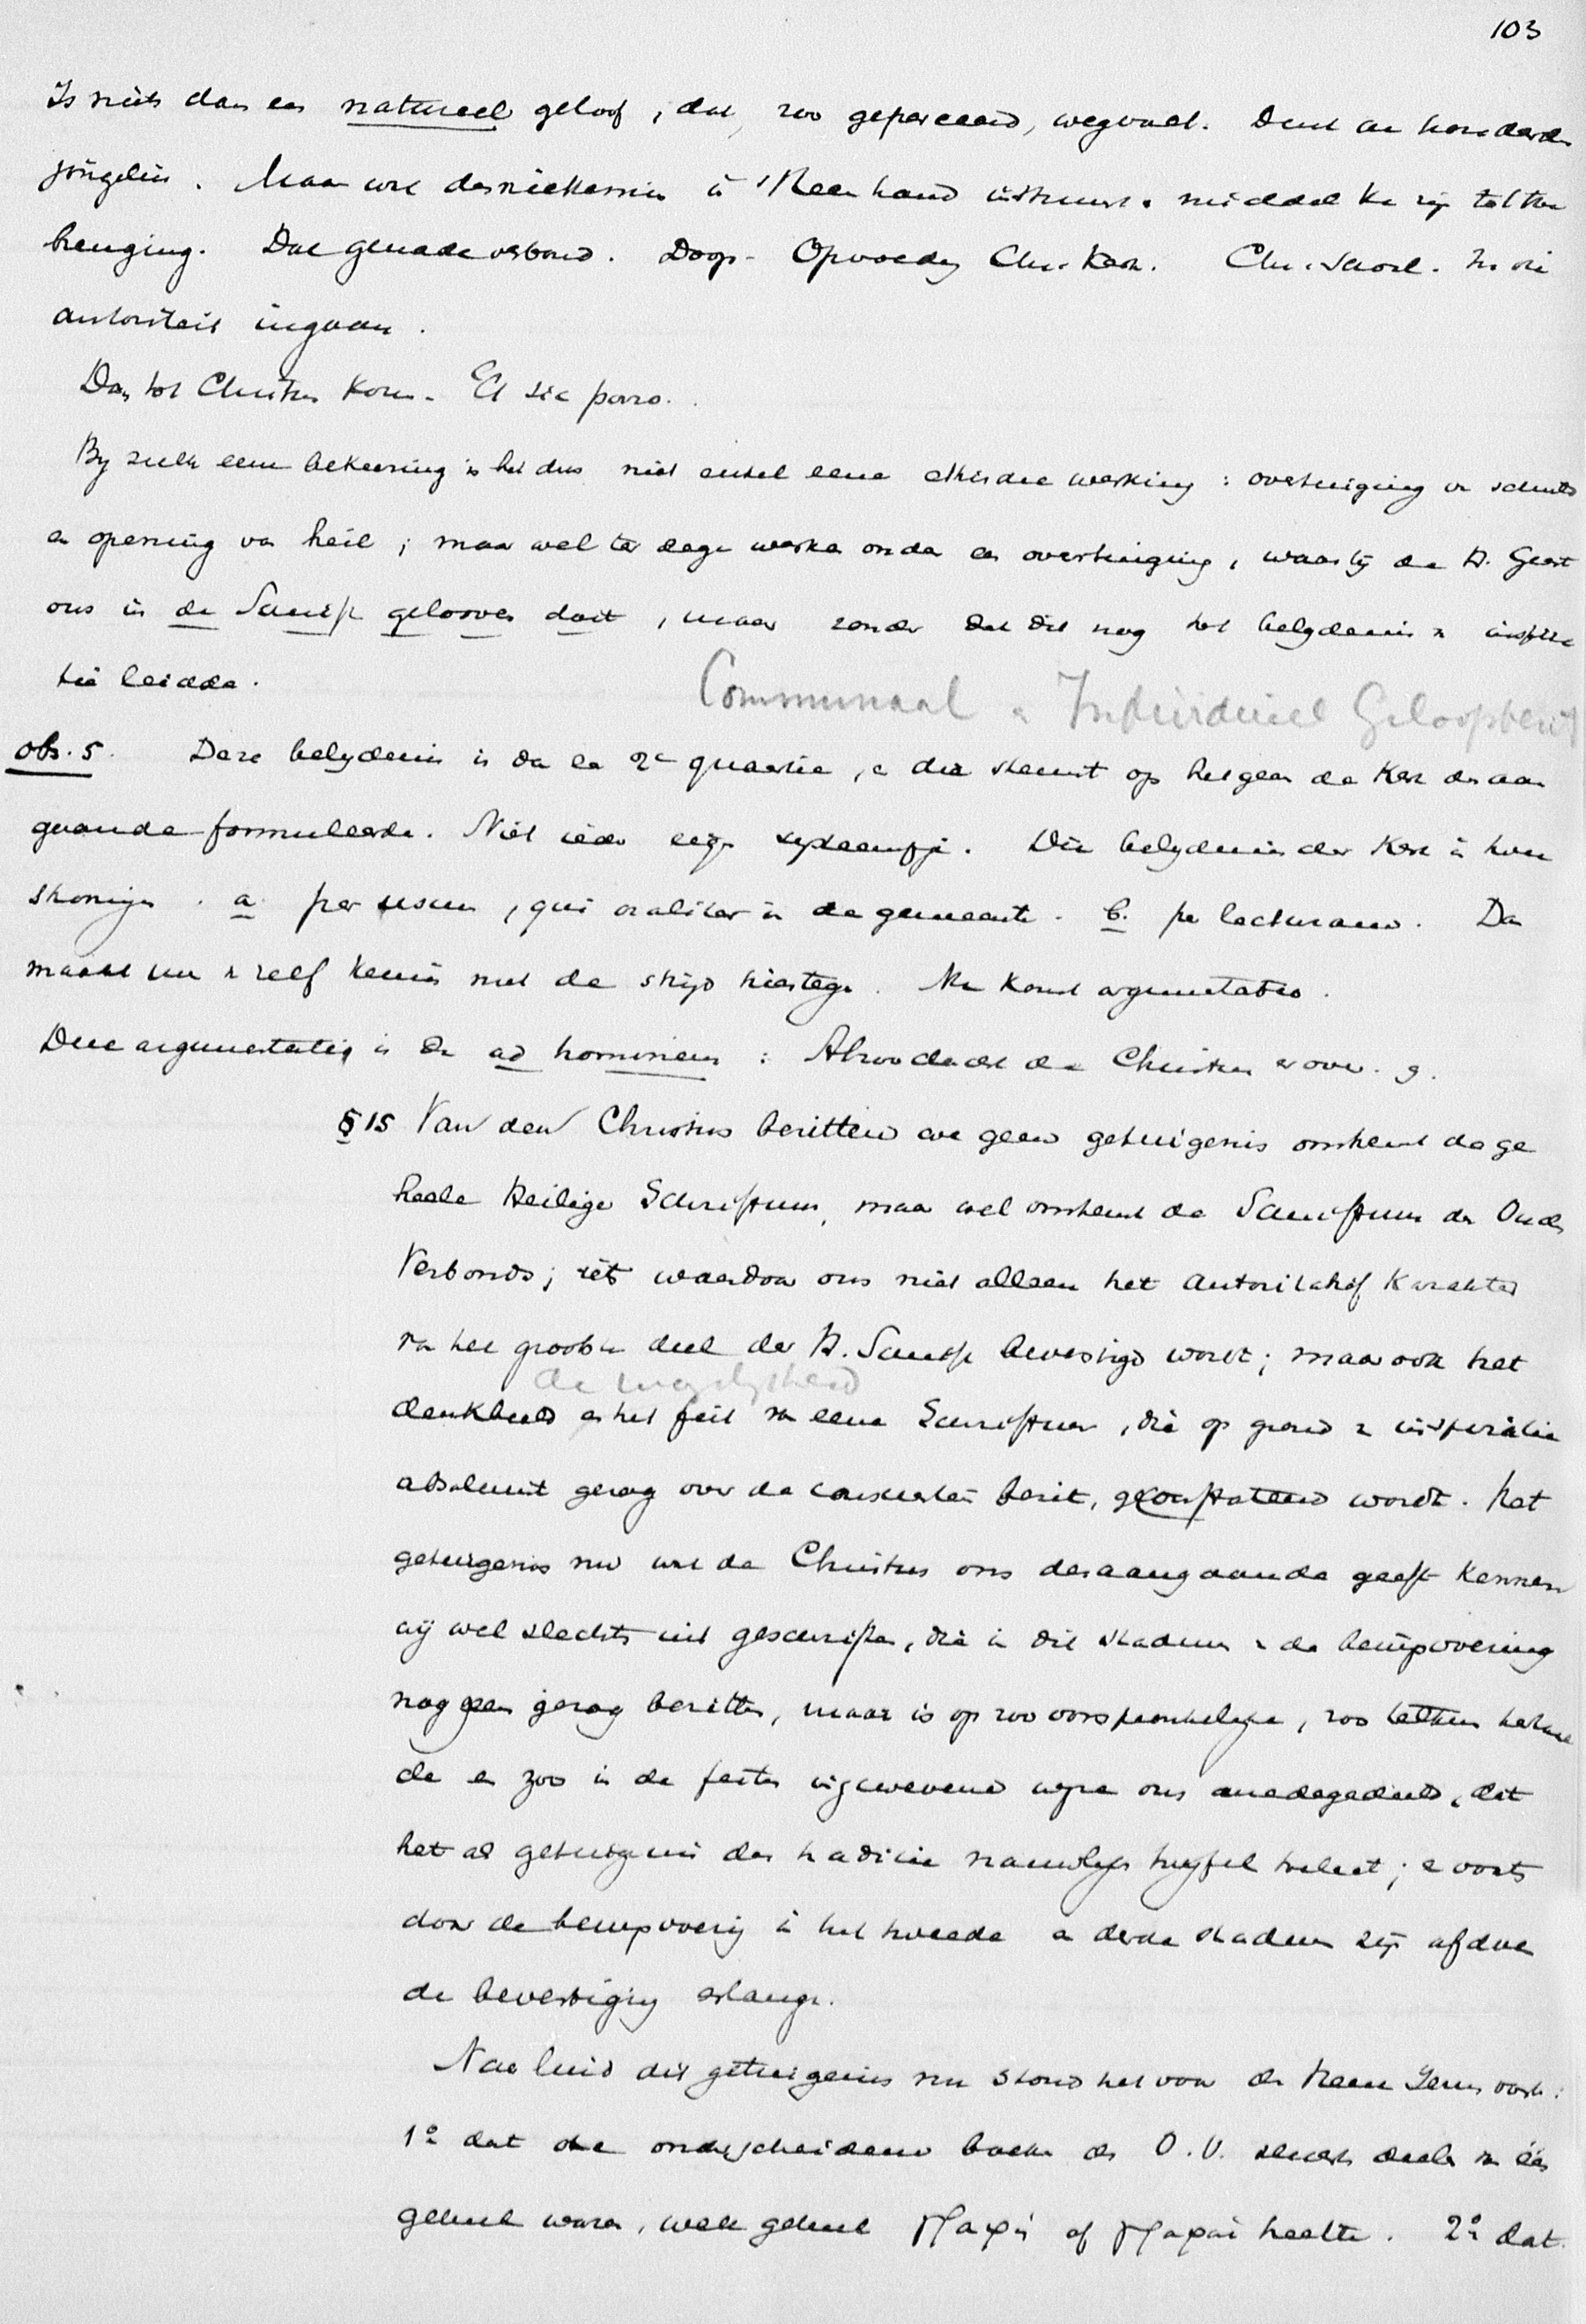 103
Is niets dan een natureel geloof, dat, zoo geparceerd, wegvalt. Denk aan honderden
jongelui. Maar wel desniettemin in 's Heeren hand instrument. middel te zijn tot toe
brenging. Dat genadeverbond. Doop. Opvoeding Chr. Kerk. Chr. School. In die
autoriteit ingaan.
Dan tot Christus komen. Et sic porro.
By zulk eene bekeering is het dus niet enkel eene ethische werking: overtuiging van schuld
en opening van heil; maar wel ter dege werken onder een overtuiging, waarbij de H. Geest
ons in de Schrift gelooven doet, maar zonder dat dit nog tot belydenis van inspira
tie leidde.
Communaal en Individueel Geloof
obs. 5. Deze belydenis is dan een 2e quaestie, en die steunt op hetgeen de Kerk desaan
gaande formuleerde. Niet ieder eigen systeempje. Die belydenis der Kerk in twee
stroomingen. a. per usum, qui oraliter in de gemeente. b. per lecturam. Dan
maakt men er zelf kennis met de strijd hiertegen. Nu komt argumentatio.
Deze argumentatie is dan ad hominem: Alzoo dacht de Christus er over.
§ 15 Van den Christus bezitten we geen getuigenis omtrent de ge
heele Heilige Schriftuur, maar wel omtrent de Schriftuur des Ouden
Verbonds; iets waardoor ons niet alleen het autoritatief karakter
van het grootste deel der H. Schrift bevestigd wordt; maar ook het
de mogelijkheid
denkbeeld en het feit van eene Schriftuur, die op grond van inspiratie
absoluut gezag over de conscientie bezit, geconstateerd wordt. Het
getuigenis nu wat de Christus ons desaangaande geeft kennen
wij wel slechts uit geschriften, die in dit stadium van de bewijsvoering
nog geen gezag bezitten, maar is op zoo oorspronkelijke, zoo telkens herhaal
de en zoo in de feiten ingewevene wijze ons medegedeeld, dat
het als getuigenis der traditie nauwlijks twijfel toelaat; en voorts
door de bewijsvoering in het tweede en derde stadium zijn afdoen
de bevestiging erlangt.
Naar luid dit getuigenis nu stond het voor den Heere Jezus vast:
1o dat de onderscheidene boeken des O.V. slechts deelen van één
geheel waren, welk geheel Γραφή of Γραφαί heette. 2o dat